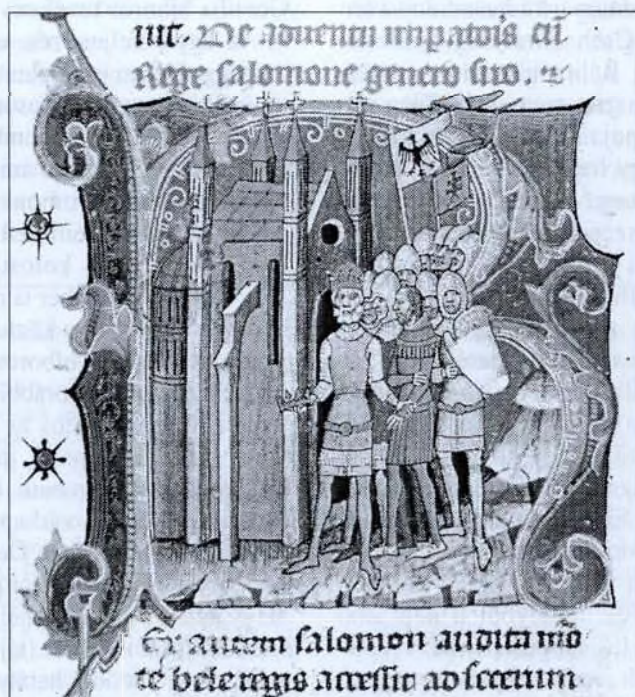 iut. De aduentu impatois cū
Rege salomone genero suo.
Ex autem salomon audita mo
te bele regis accessit ad socerum